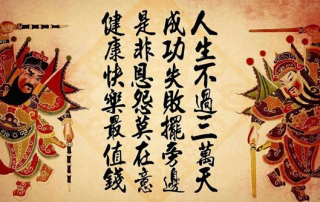 人生不過三萬天
成功失敗擺旁邊
是非恩怨莫在意
健康快樂最值錢